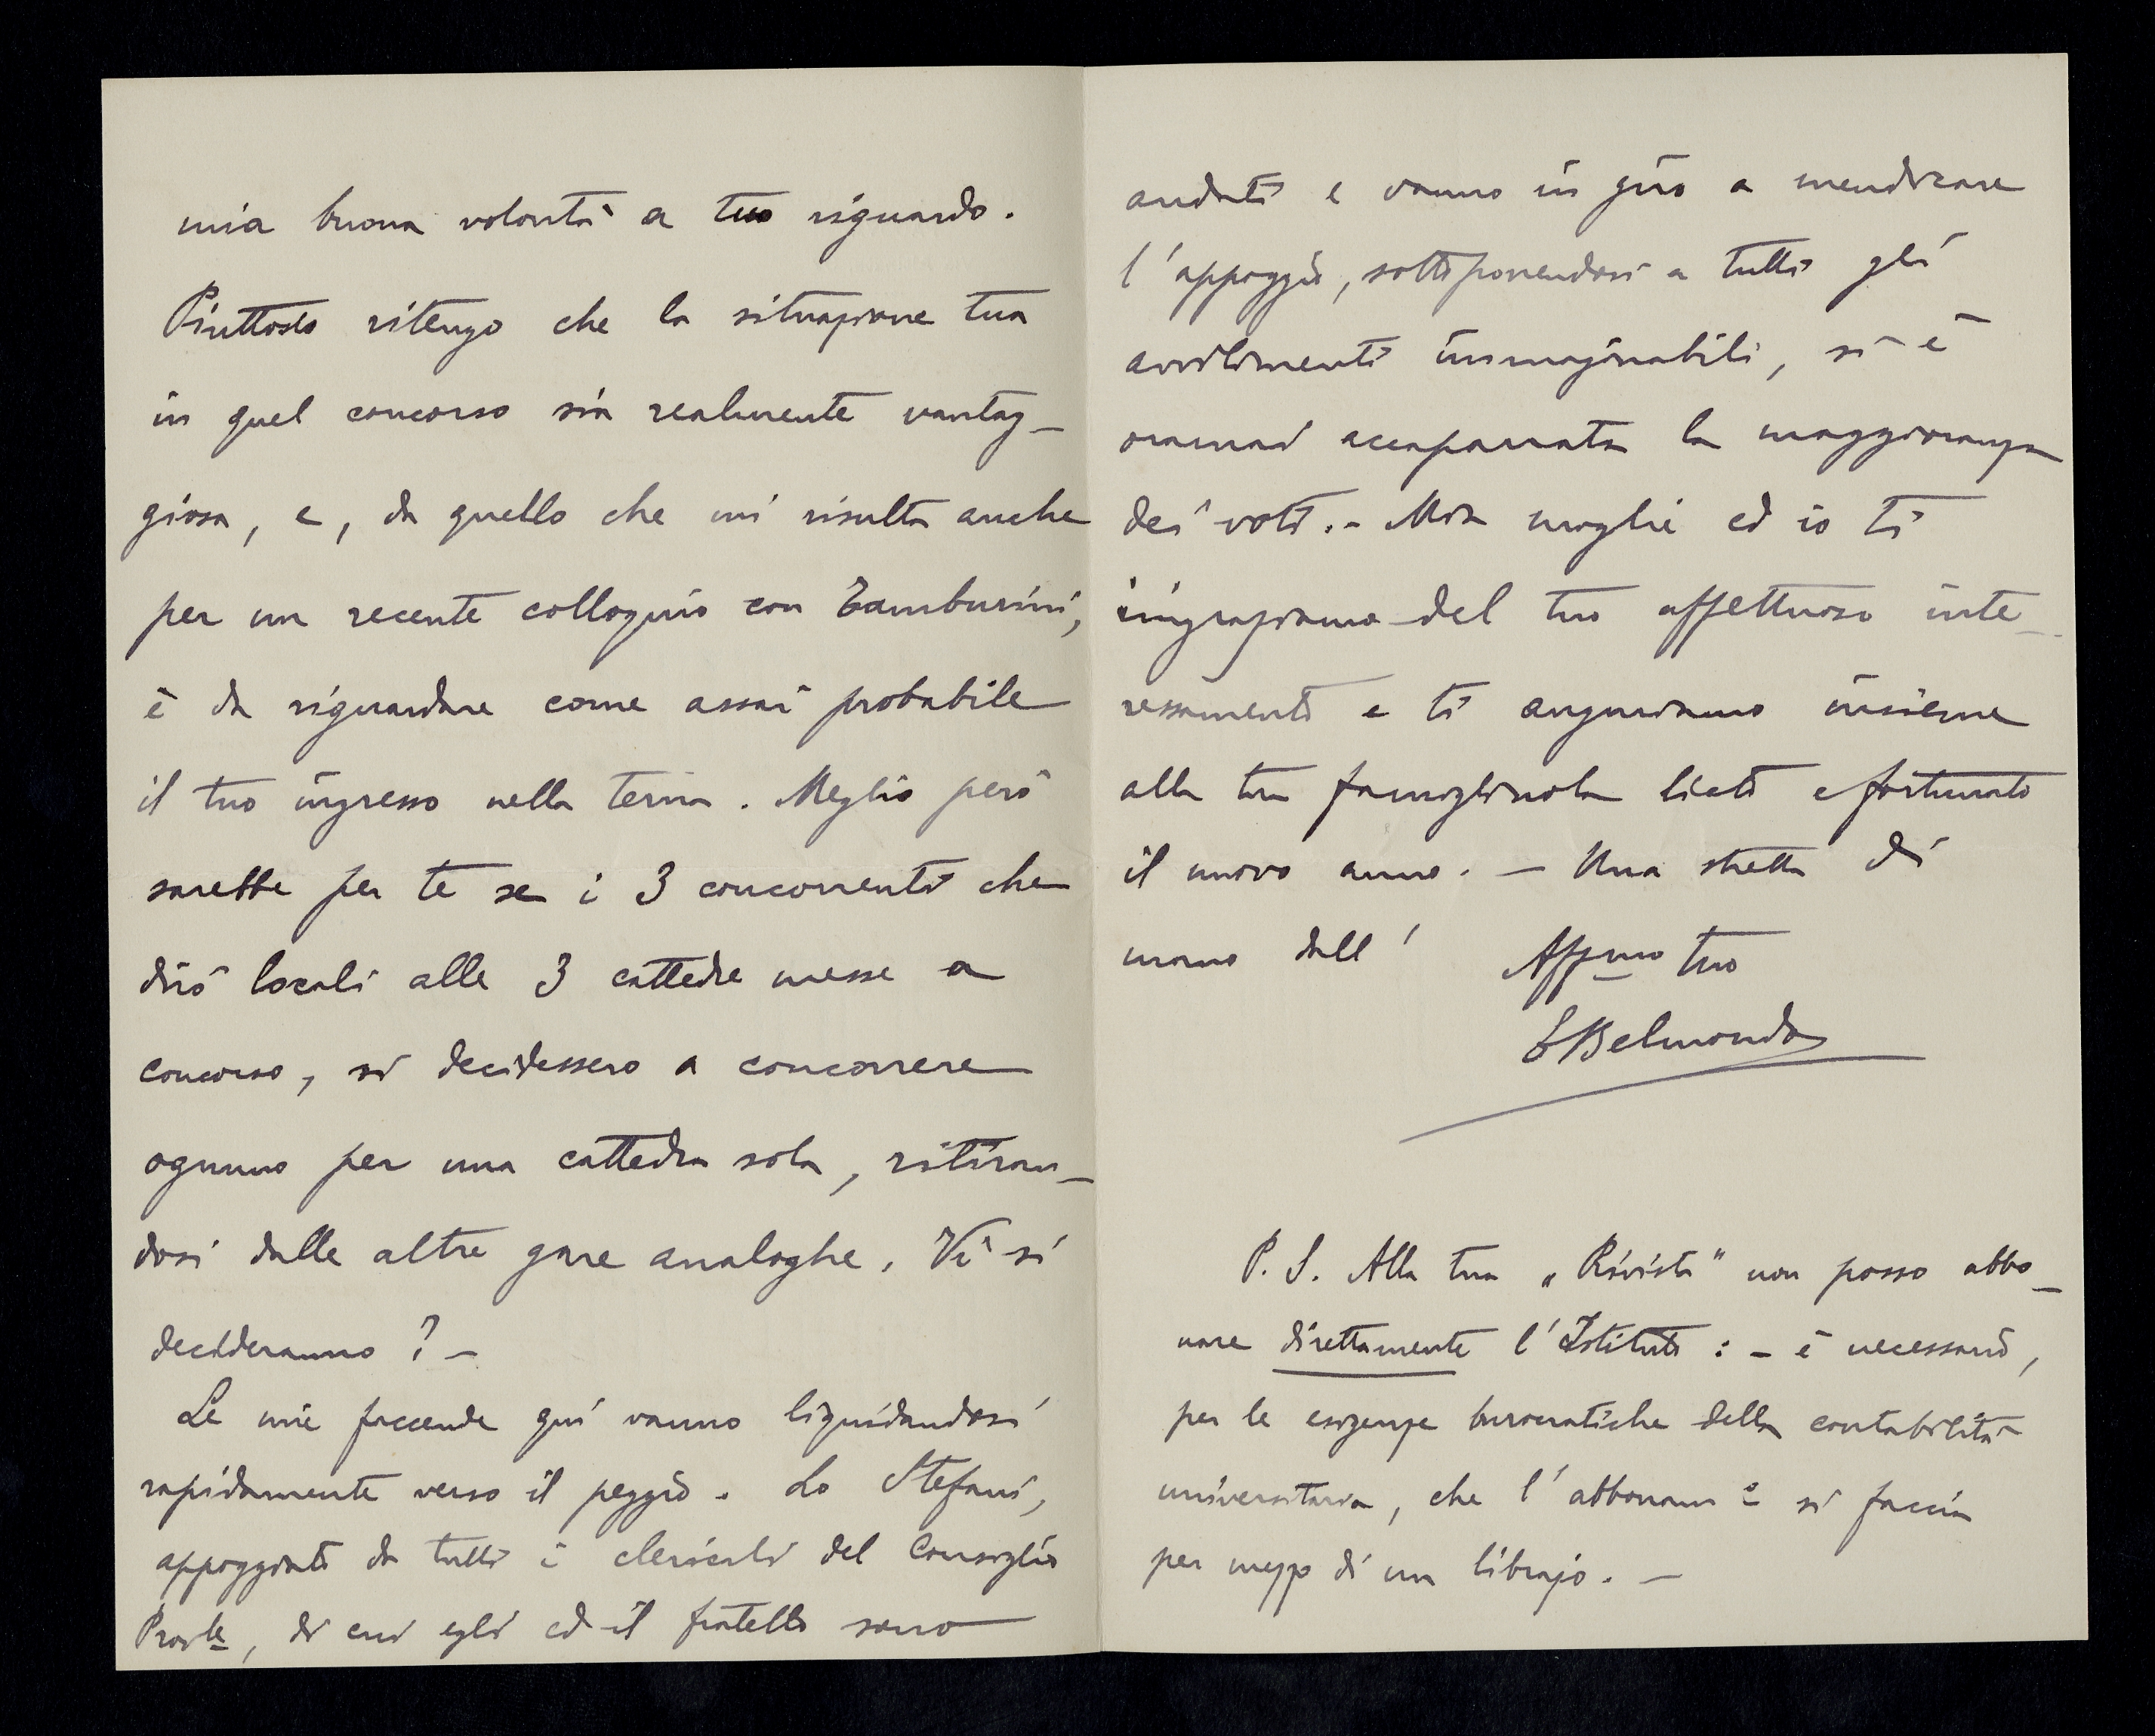 mia buona volontà a tuo riguardo.
Piuttosto ritengo che la situazione tua
in quel concorso sia realmente vantag-
giosa, e, da quello che mi risulta anche
per un recente colloquio con Tamburini,
è da riguardare come assai probabile
il tuo ingresso nella terna. Meglio però
sarebbe per te se i 3 concorrenti che
dirò locali alle 3 cattedre messe a
concorso, si decidessero a concorrere
ognuno per una cattedra sola, ritiran-
dosi dalle altre gare analoghe. Vi si
decideranno? -
Le mie faccende qui vanno liquidandosi
rapidamente verso il peggio. Lo Stefani,
appoggiato da tutti i clericali del Consiglio
Provle, di cui egli ed il fratello sono
andati e vanno in giro a mendicare
l'appoggio, sottoponendosi a tutti gli
avvilimenti immaginabili, si è
oramai accaparrata la maggioranza
dei voti. - Mia moglie ed io ti
ringraziamo del tuo affettuoso inte-
ressamento e ti auguriamo insieme
alla tua famigliuola lieto e fortunato
il nuovo anno. - Una stretta di
mano dall'
Affmo tuo
EBelmondo
P. S. Alla tua "Rivista" non posso abbo-
nare direttamente l'Istituto: - è necessario,
per le esigenze burocratiche della contabilità
universitaria, che l'abbonamo si faccia
per mezzo di un librajo. -